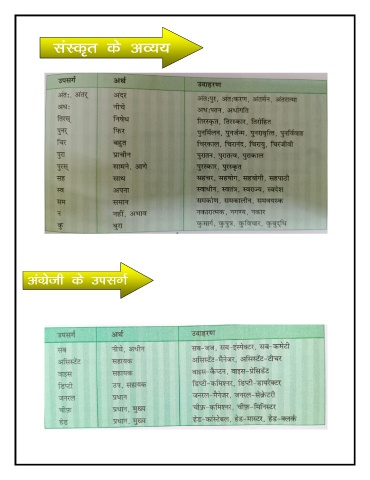 संस्कृत के अव्यय
उपसर्ग अर्थ उदाहरण
अंतः, अंतर् अंदर अंतःपुर, अंतःकरण, अंतर्मन, अंतरात्मा
अधः नीचे अधःपतन, अधोगति
तिरस् निषेध तिरस्कृत, तिरस्कार, तिरोहित
पुनर् फिर पुनर्मिलन, पुनर्जन्म, पुनरावृत्ति, पुनर्विवाह
चिर बहुत चिरकाल, चिरानंद, चिरायु, चिरंजीवी
पुरा प्राचीन पुरातन, पुरातत्व, पुराकाल
पुरस् सामने, आगे पुरस्कार, पुरस्कृत
सह साथ सहचर, सहयोग, सहयोगी, सहपाठी
स्व अपना स्वाधीन, स्वतंत्र, स्वराज्य, स्वदेश
सम समान समकोण, समकालीन, समवयस्क
न नहीं, अभाव नकारात्मक, नगण्य, नकार
कु बुरा कुमार्ग, कुपुत्र, कुविचार, कुबुद्धि
अंग्रेजी के उपसर्ग
उपसर्ग अर्थ उदाहरण
सब नीचे, अधीन सब-जज, सब-इंस्पेक्टर, सब-कमेटी
असिस्टेंट सहायक असिस्टेंट-मैनेजर, असिस्टेंट-टीचर
वाइस सहायक वाइस-कैप्टन, वाइस-प्रेसिडेंट
डिप्टी उप, सहायक डिप्टी-कमिश्नर, डिप्टी-डायरेक्टर
जनरल प्रधान जनरल-मैनेजर, जनरल-सेक्रेटरी
चीफ़ प्रधान, मुख्य चीफ़-कमिश्नर, चीफ़-मिनिस्टर
हेड प्रधान, मुख्य हेड-कांस्टेबल, हेड-मास्टर, हेड-क्लर्क